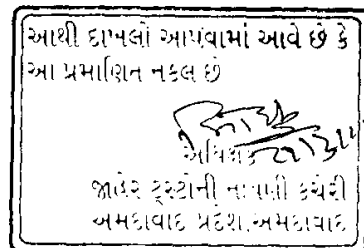 આથી દાખલો આપવામાં આવે છે કે
આ પ્રમાણિત નકલ છે
અધિક્ષક
જાહેર ટ્રસ્ટોની નોંધણી કચેરી
અમદાવાદ પ્રદેશ.અમદાવાદ